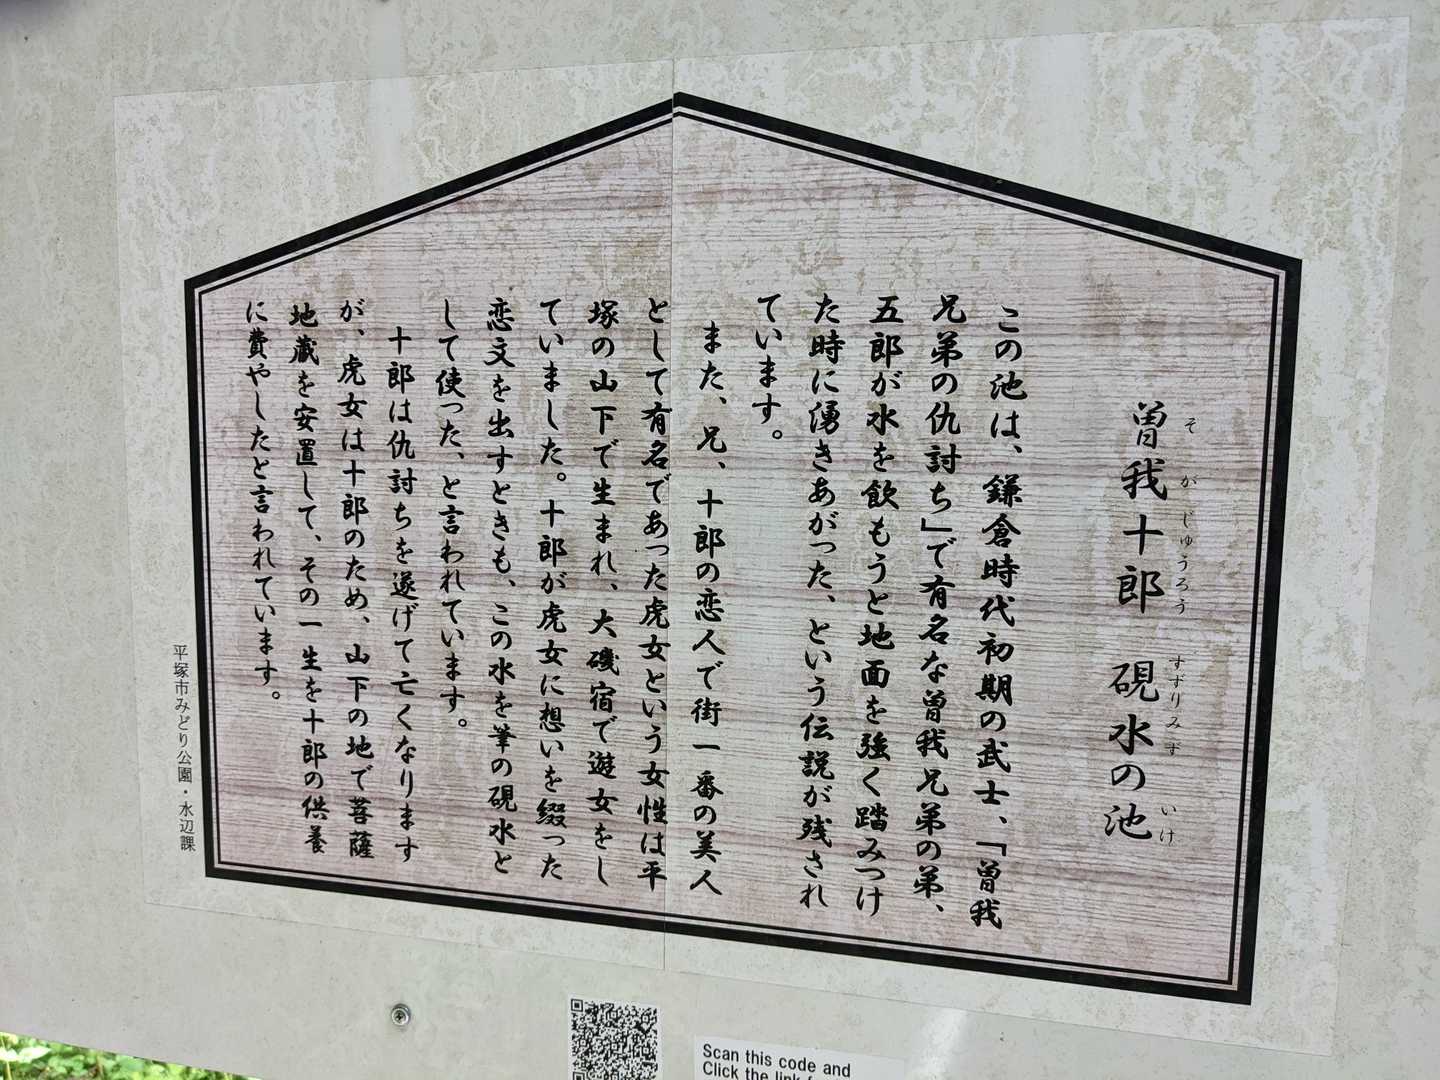 曽我十郎 硯水の池
そ が じゅうろう すずりみず いけ
この池は、鎌倉時代初期の武士、「曽我
兄弟の仇討ち」で有名な曽我兄弟の弟、
五郎が水を飲もうと地面を強く踏みつけ
た時に湧きあがった、という伝説が残され
ています。
また、兄、十郎の恋人で街一番の美人
として有名であった虎女という女性は平
塚の山下で生まれ、大磯宿で遊女をし
ていました。十郎が虎女に想いを綴った
恋文を出すときも、この水を筆の硯水と
して使った、と言われています。
十郎は仇討ちを遂げて亡くなります
が、虎女は十郎のため、山下の地で菩薩
地蔵を安置して、その一生を十郎の供養
に費やしたと言われています。
平塚市みどり公園・水辺課
Scan this code and
Click the link